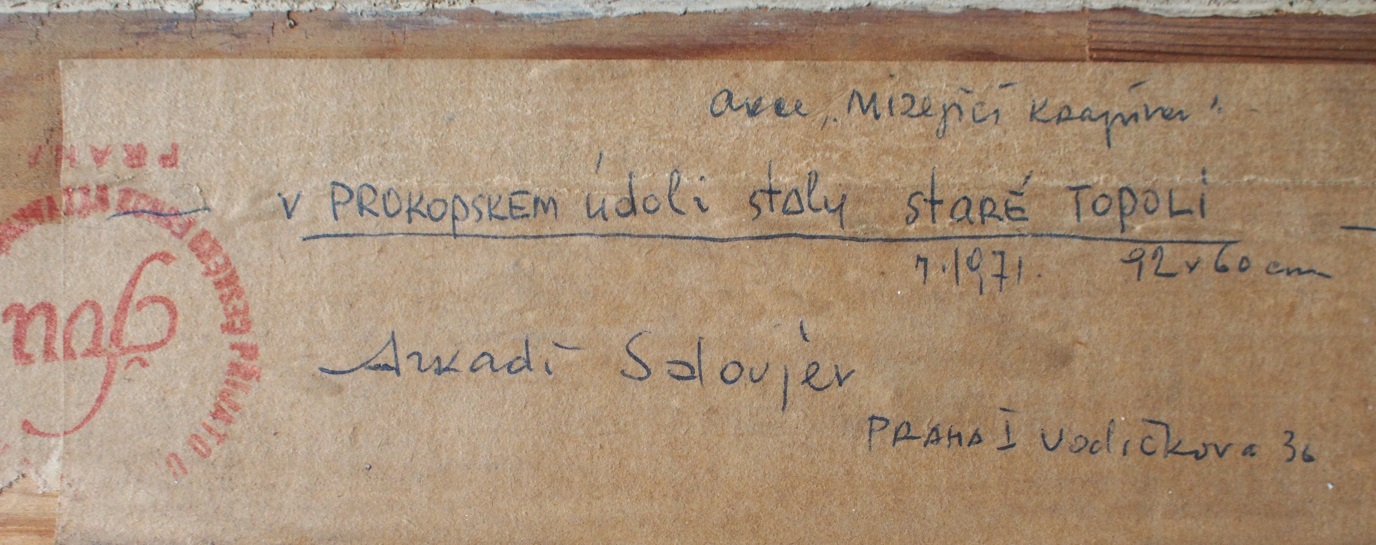 akce „Mizející krajina"
v PROKOPSKÉM údolí stály staré TOPOLI
1971. 92 x 60 cm
Arkadi Solovjev
PRAHA I Vodičkova 36
PRAHA
ČESKÉHO PŘIJATO
gču